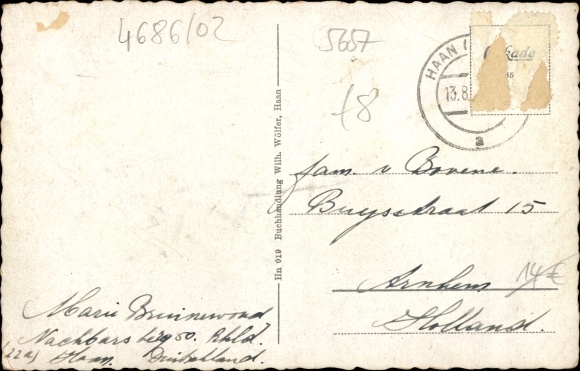 4686/02
5657
HAAN
13.8.
a
18
fam. v Bovene.
Buysstraat 15
Arnhem
Holland.
14 €
Hn 019 Buchhandlung Wilh. Wölfer, Haan
Marie Bruinewoud
Nachbarsberg 50. Rhld.
22a) Haan, Deutschland.